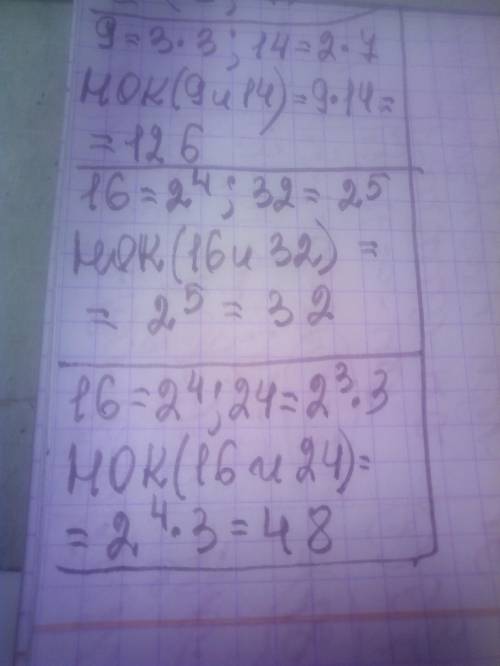 9=3·3; 14=2·7
НОК(9и14)=9·14=
=126
16=2⁴; 32=2⁵
НОК(16и32)=
=2⁵=32
16=2⁴; 24=2³·3
НОК(16и24)=
=2⁴·3=48